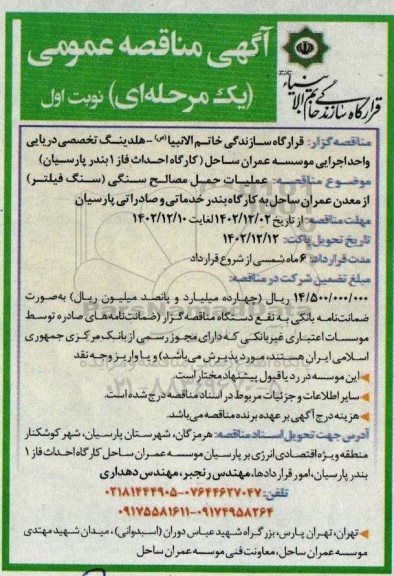 آگهی مناقصه عمومی
(یک مرحله‌ای) نوبت اول
قرارگاه سازندگی خاتم الانبیاء
مناقصه گزار: قرارگاه سازندگی خاتم الانبیا(ص) - هلدینگ تخصصی دریایی
واحد اجرایی موسسه عمران ساحل (کارگاه احداث فاز ۱ بندر پارسیان)
موضوع مناقصه: عملیات حمل مصالح سنگی (سنگ فیلتر)
از معدن عمران ساحل به کارگاه بندر خدماتی و صادراتی پارسیان
مهلت مناقصه: از تاریخ ۱۴۰۲/۱۲/۰۲ لغایت ۱۴۰۲/۱۲/۱۰
تاریخ تحویل پاکت: ۱۴۰۲/۱۲/۱۲
مدت قرارداد: ۶ ماه شمسی از شروع قرارداد
مبلغ تضمین شرکت در مناقصه:
۱۴/۵۰۰/۰۰۰/۰۰۰ ریال (چهارده میلیارد و پانصد میلیون ریال) به‌صورت
ضمانت‌نامه بانکی به نفع دستگاه مناقصه گزار (ضمانت‌نامه‌های صادره توسط
موسسات اعتباری غیربانکی که دارای مجوز رسمی از بانک مرکزی جمهوری
اسلامی ایران هستند، مورد پذیرش می‌باشد) و یا واریز وجه نقد
این موسسه در رد یا قبول پیشنهاد مختار است.
سایر اطلاعات و جزئیات مربوط در اسناد مناقصه درج شده است.
هزینه درج آگهی بر عهده برنده مناقصه می‌باشد.
آدرس جهت تحویل اسناد مناقصه: هرمزگان، شهرستان پارسیان، شهر کوشکنار
منطقه ویژه اقتصادی انرژی بر پارسیان موسسه عمران ساحل کارگاه احداث فاز ۱
بندر پارسیان، امور قراردادها، مهندس رنجبر، مهندس دهداری
تلفن: ۰۷۶۴۴۶۲۷۰۴۷-۰۲۱۸۱۴۴۴۹۰۵
۰۹۱۷۴۹۵۸۲۶۴-۰۹۱۷۵۵۸۱۶۱۱
تهران، تهران پارس، بزرگراه شهید عباس دوران (اسبدوانی)، میدان شهید مهتدی
موسسه عمران ساحل، معاونت فنی موسسه عمران ساحل